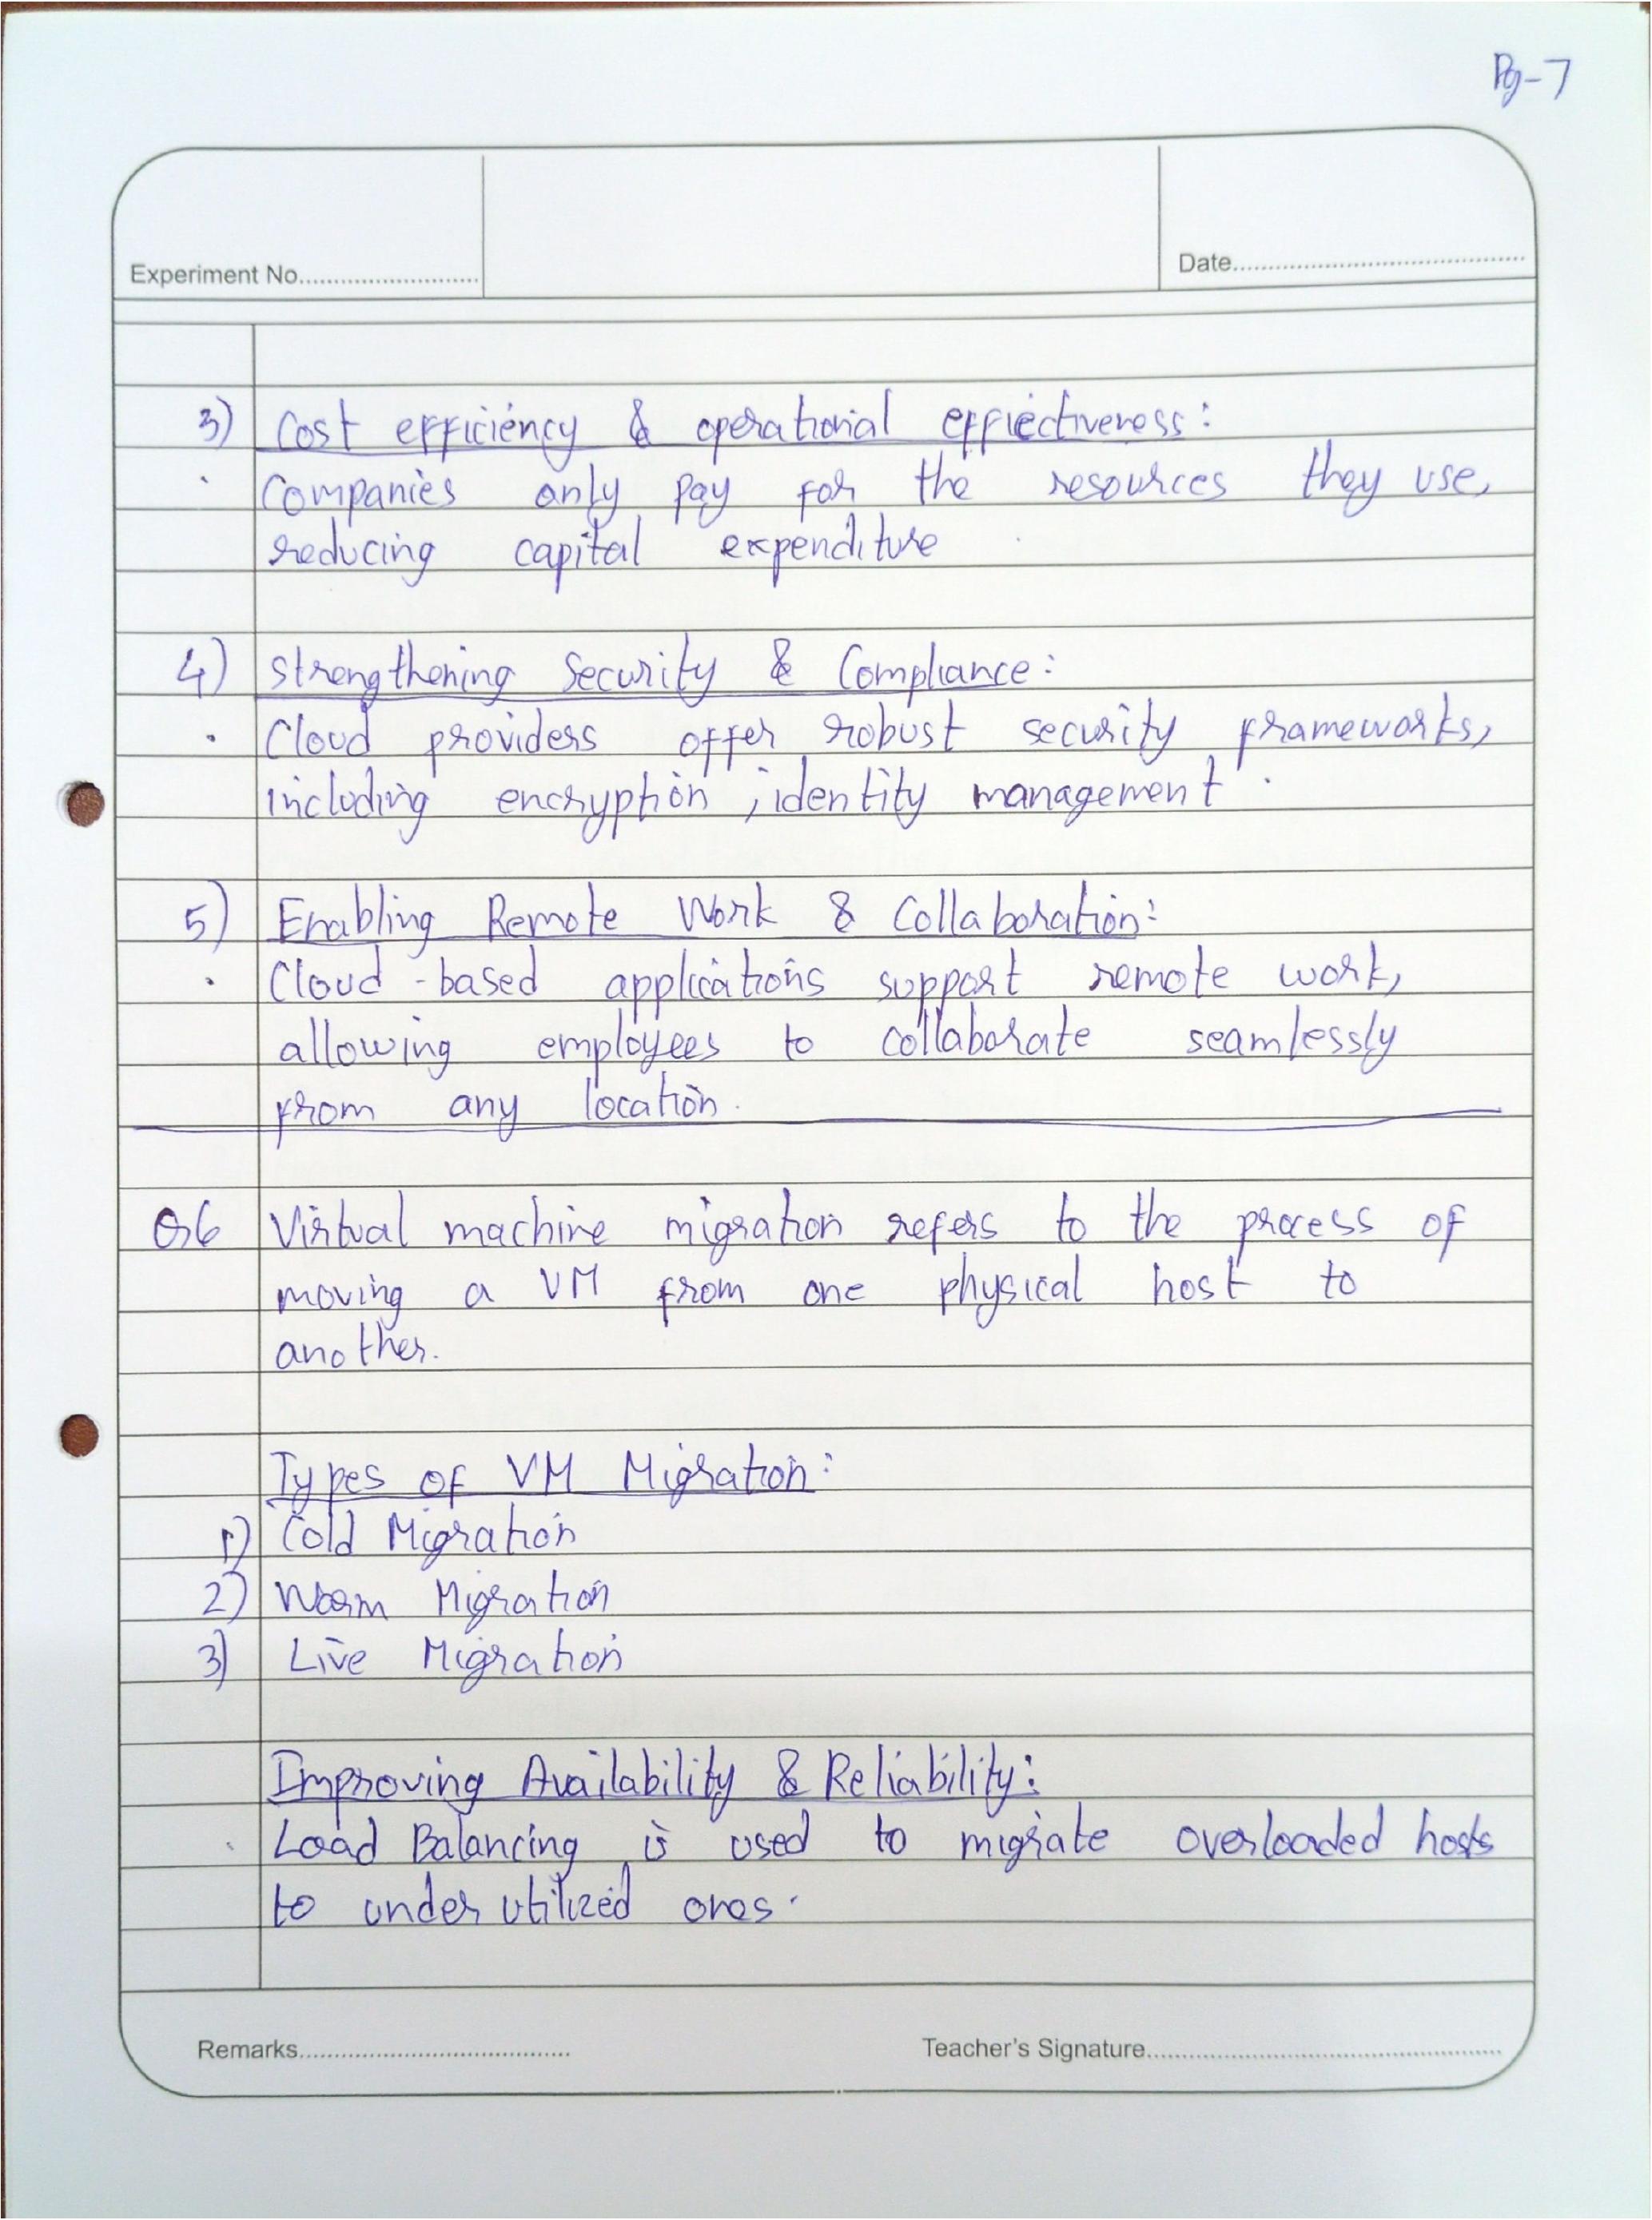 Pg-7
Experiment No..........................
Date..........................................
3) Cost efficiency & operational effiectiveness:
· Companies only pay for the resources they use,
reducing capital expenditure
4) Strengthening Security & Compliance:
· Cloud providers offer robust security frameworks,
including encryption, identity management.
5) Enabling Remote Work & Collaboration:
· Cloud-based applications support remote work,
allowing employees to collaborate seamlessly
from any location.
Q6 Virtual machine migration refers to the process of
moving a VM from one physical host to
another.
Types of VM Migration:
1) Cold Migration
2) Warm Migration
3) Live Migration
Improving Availability & Reliability:
· Load Balancing is used to migrate overloaded hosts
to under utilized ones.
Remarks.......................................
Teacher's Signature...................................................